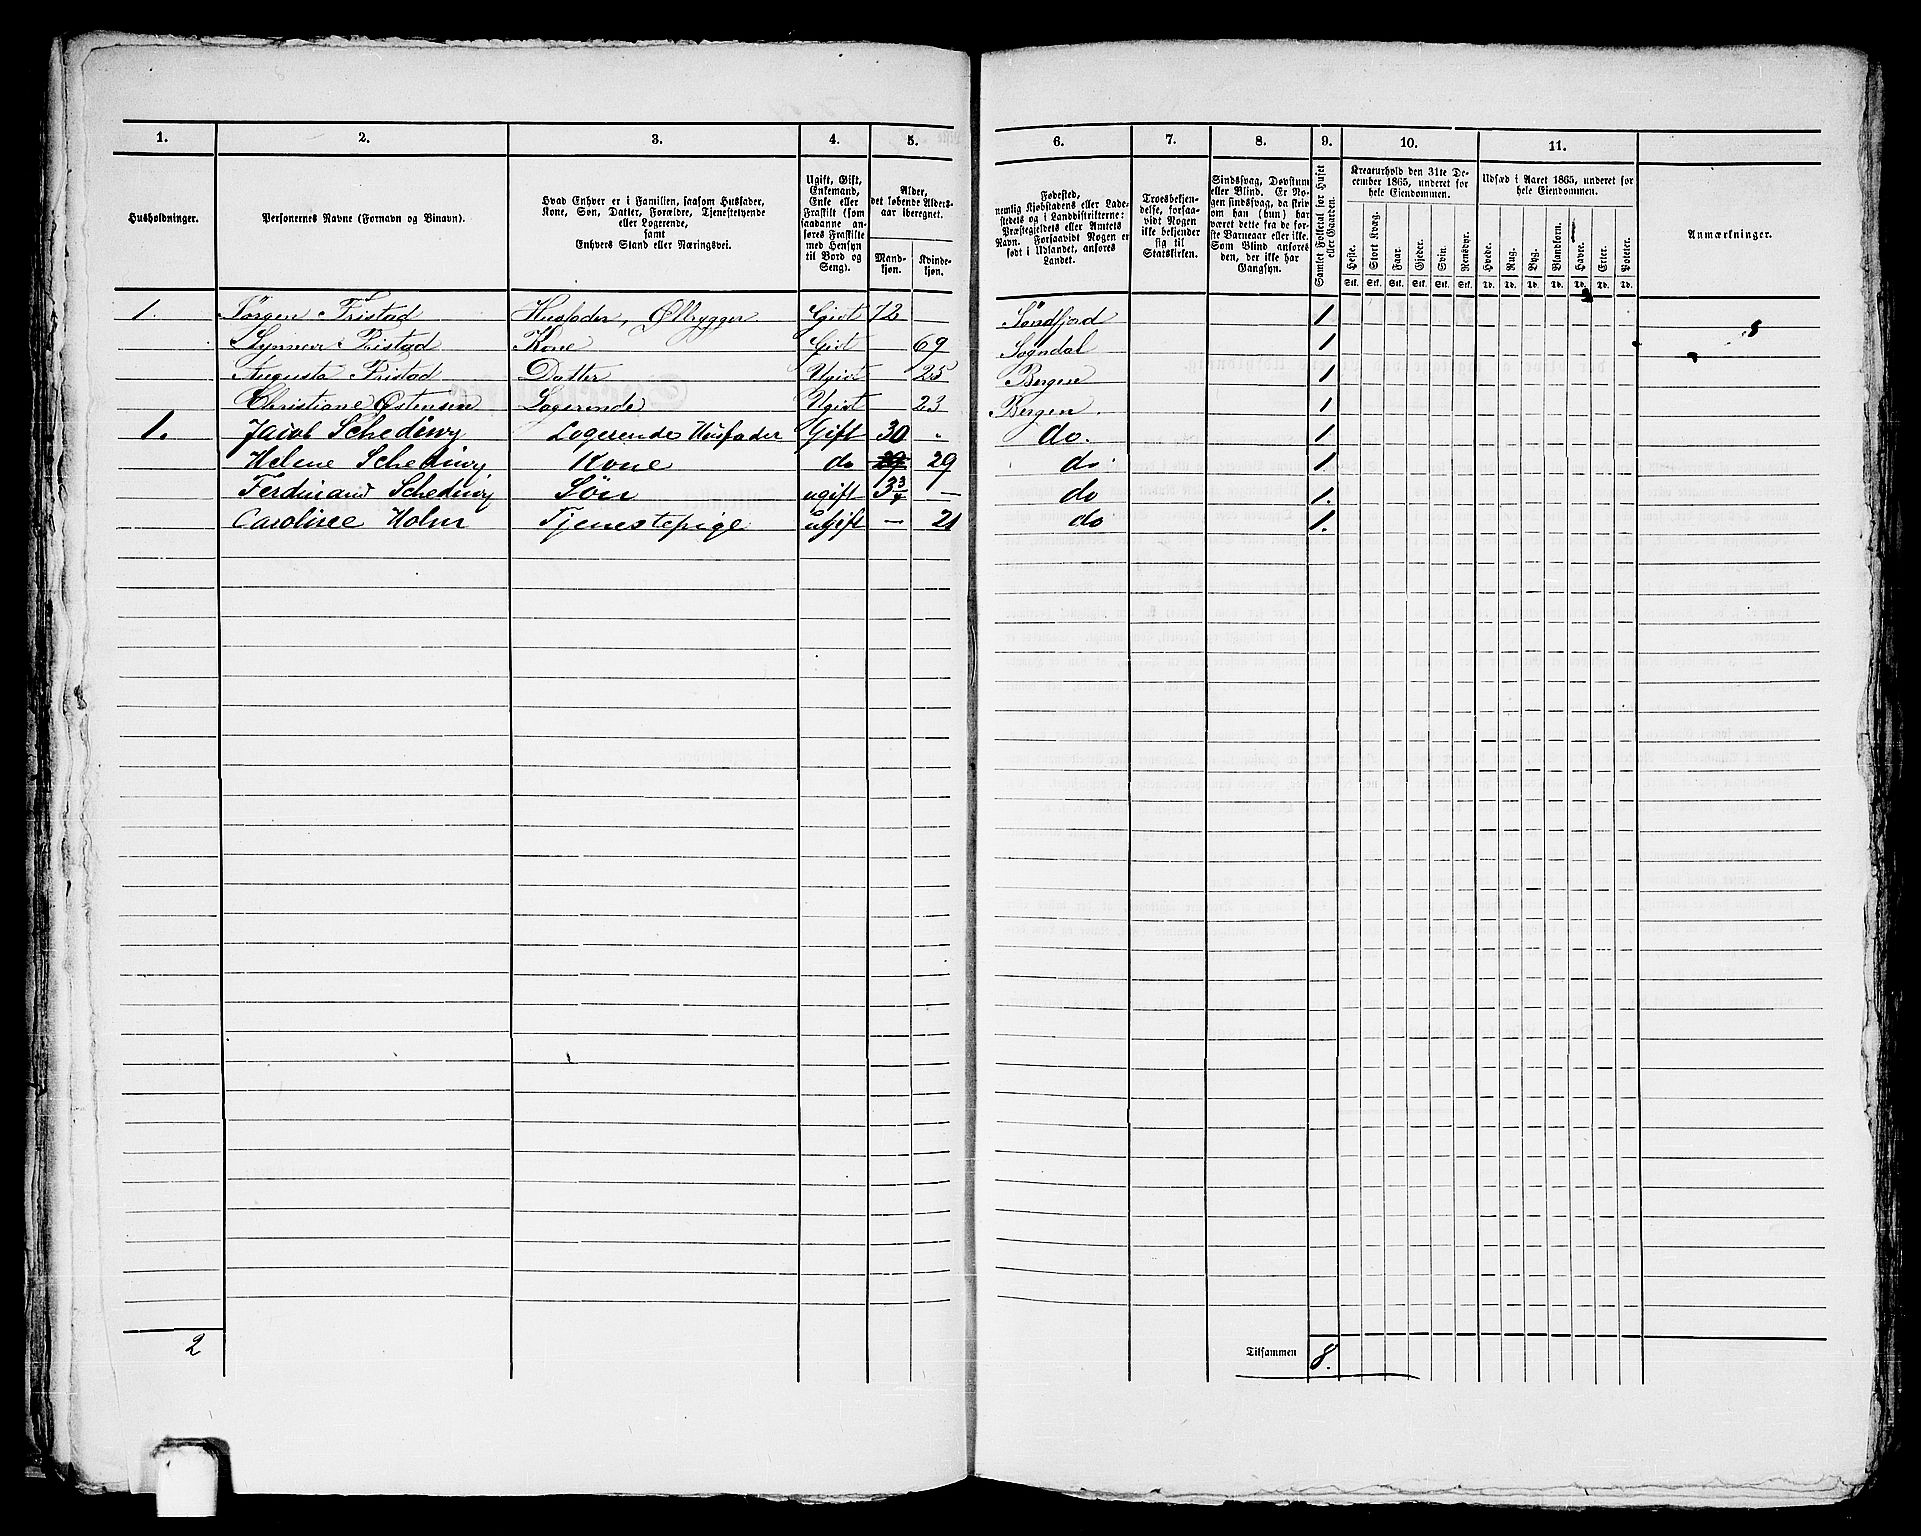 1. 2. 3. 4. 5. 6. 7. 8. 9. 10. 11.
Husholdninger. Personernes Navne (Fornavn og Binavn). Hvad Enhver er i Familien, saasom Husfader, Kone, Søn, Datter, Forældre, Tjenestetyende eller Logerende, samt Enhvers Stand eller Næringsvei. Ugift, Gift, Enkemand, Enke eller Fraskilt (som saadanne anføres Fraskilte med Hensyn til Bord og Seng). Alder, det løbende Aldersaar iberegnet. Mandkjøn. Kvindekjøn. Fødested, nemlig Kjøbstadens eller Ladestedets og i Landdistrikterne: Præstegjeldets eller Amtets Navn. Forsaavidt Nogen er født i Udlandet, anføres Landet. Troesbekjendelse, forsaavidt Nogen ikke bekjender sig til Statskirken. Sindssvag, Døvstum eller Blind. Er Nogen sindssvag, da skrives om han (hun) har været dette fra de første Barneaar eller ikke. Som Blind anføres den, der ikke har Gangsyn. Samlet Folketal for Huset eller Gaarden. Kreaturhold den 31te December 1865, underet for hele Eiendommen. Heste. Stort Kvæg. Faar. Gjeder. Svin. Rensdyr. Udsæd i Aaret 1865, underet for hele Eiendommen. Hvede. Rug. Byg. Blandkorn. Havre. Erter. Poteter. Anmærkninger.
Stk. Stk. Stk. Stk. Stk. Stk. Td. Td. Td. Td. Td. Td. Td.
1. Jørgen Fristad Husfader, Ølbrygger Givt 72 Søndfjord 1
Synneve Fristad Kone Givt 69 Sogndal 1 8
Augusta Fristad Datter Ugivt 25 Bergen 1
Christiane Østensen Logerende Ugivt 23 Bergen 1
1. Jacob Schediwy Logerende Husfader Gift 30 " do. 1
Helene Schediwy Kone do 29 do 1
Ferdinand Schediwy Søn ugift 3 3/4 — do 1.
Caroline Holm Tjenestepige ugift — 21 do 1.
2 Tilsammen 8.